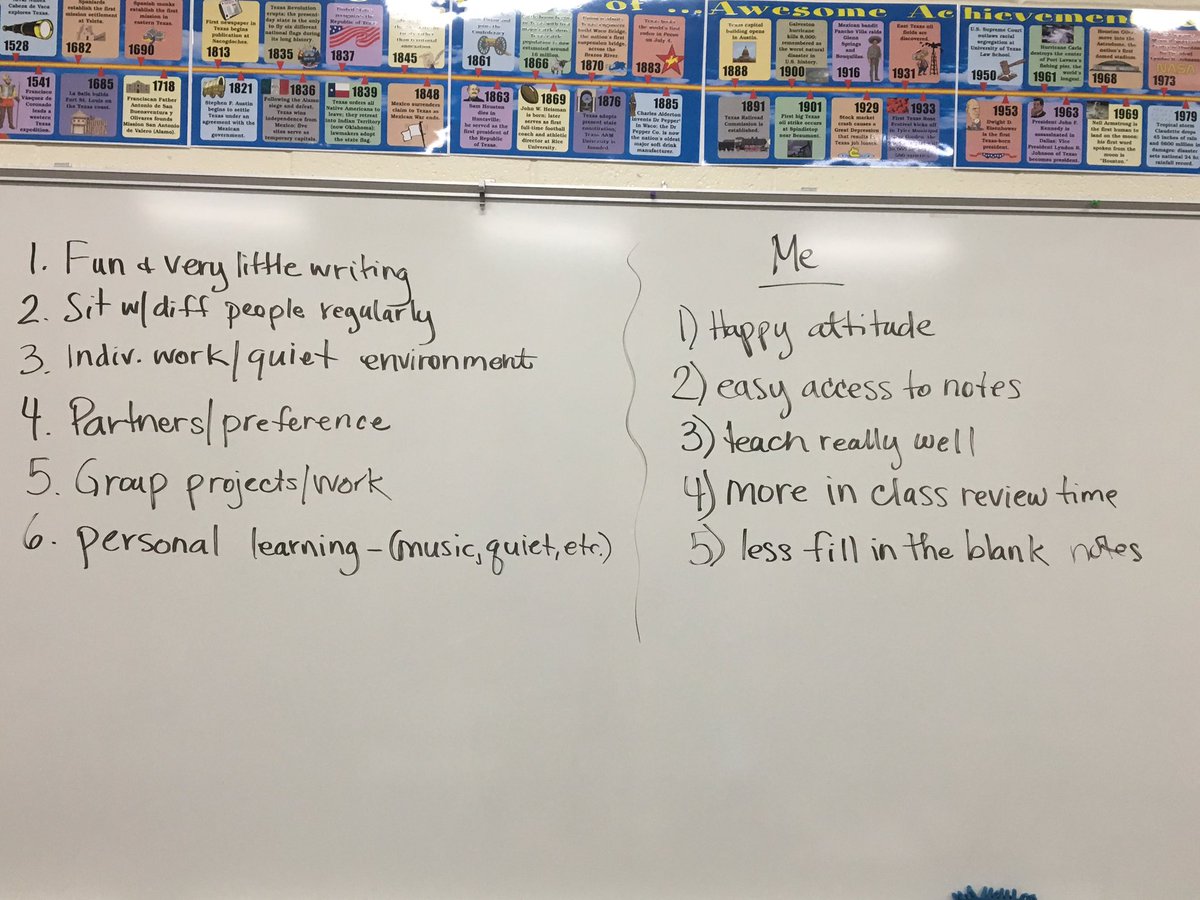 of ... Awesome Achievemen
Cabeza de Vaca
explores Texas.
1528
Spaniards
establish the first
mission settlement
at Ysleta.
1682
Spanish monks
establish the first
mission in
eastern Texas.
1690
First newspaper in
Texas begins
publication at
Nacogdoches.
1813
Texas Revolution
erupts; the present-
day state is the only
to fly six different
national flags during
its long history.
1835
Republic of
1837
1845
1861
1866
suspension bridge,
across the
Brazos River.
1870
rodeo in Pecos
on July 4.
1883
Texas capitol
building opens
in Austin.
1888
Galveston
hurricane
kills 8,000,
remembered as
the worst natural
disaster in
U.S. history.
1900
Mexican bandit
Pancho Villa raids
Glenn
Springs
and
Boquillas.
1916
East Texas oil
fields are
discovered.
1931
U.S. Supreme Court
outlaws racial
segregation at
University of Texas
Law School.
1950
Hurricane Carla
destroys the center
of Port Lavaca's
fishing pier, the
world's
longest.
1961
Houston
move into the
Astrodome, the
nation's first
domed stadium.
1968
1973
1541
Francisco
Vásquez de
Coronado
leads a
western
Texas
expedition.
1685
La Salle builds
Fort St. Louis on
the Texas coast.
1718
Franciscan Father
Antonio de San
Buenaventura y
Olivares founds
Mission San Antonio
de Valero (Alamo).
1821
Stephen F. Austin
begins to settle
Texas under an
agreement with the
Mexican
government.
1836
Following the Alamo
siege and defeat,
Texas wins
independence from
Mexico; five
sites serve as
temporary capitals.
1839
Texas orders all
Native Americans to
leave; they retreat
into Indian Territory
(now Oklahoma);
lawmakers adopt
the state flag.
1848
Mexico surrenders
claim to Texas as
Mexican War ends.
1863
Sam Houston
dies in
Huntsville;
he served as the
first president of
the Republic
of Texas.
1869
John W. Heisman
is born; later
serves as first
full-time football
coach and athletic
director at Rice
University.
1876
Texas adopts
present state
constitution;
Texas A&M
University is
founded.
1885
Charles Alderton
invents Dr Pepper
in Waco; the Dr
Pepper Co. is now
the nation's oldest
major soft drink
manufacturer.
1891
Texas Railroad
Commission is
established.
1901
First big Texas
oil strike occurs
at Spindletop
near Beaumont.
1929
Stock market
crash causes a
Great Depression
that results in
Texas job losses.
1933
First Texas Rose
Festival kicks off
in Tyler Municipal
1953
Dwight D.
Eisenhower
is the first
Texas-born
president.
1963
President John F.
Kennedy is
assassinated in
Dallas; Vice
President Lyndon B.
Johnson of Texas
becomes president
1969
Neil Armstrong is
the first human to
land on the moon;
his first word
spoken from the
moon is
"Houston."
1979
Tropical storm
Claudette drops
45 inches of rain
and $600 million in
damages; disaster
sets national 24 hr
rainfall record.
1. Fun & very little writing
2. Sit w/ diff people regularly
3. Indiv. work/quiet environment
4. Partners/preference
5. Group projects/work
6. personal learning - (music, quiet, etc.)
Me
1) Happy attitude
2) easy access to notes
3) teach really well
4) more in class review time
5) less fill in the blank notes